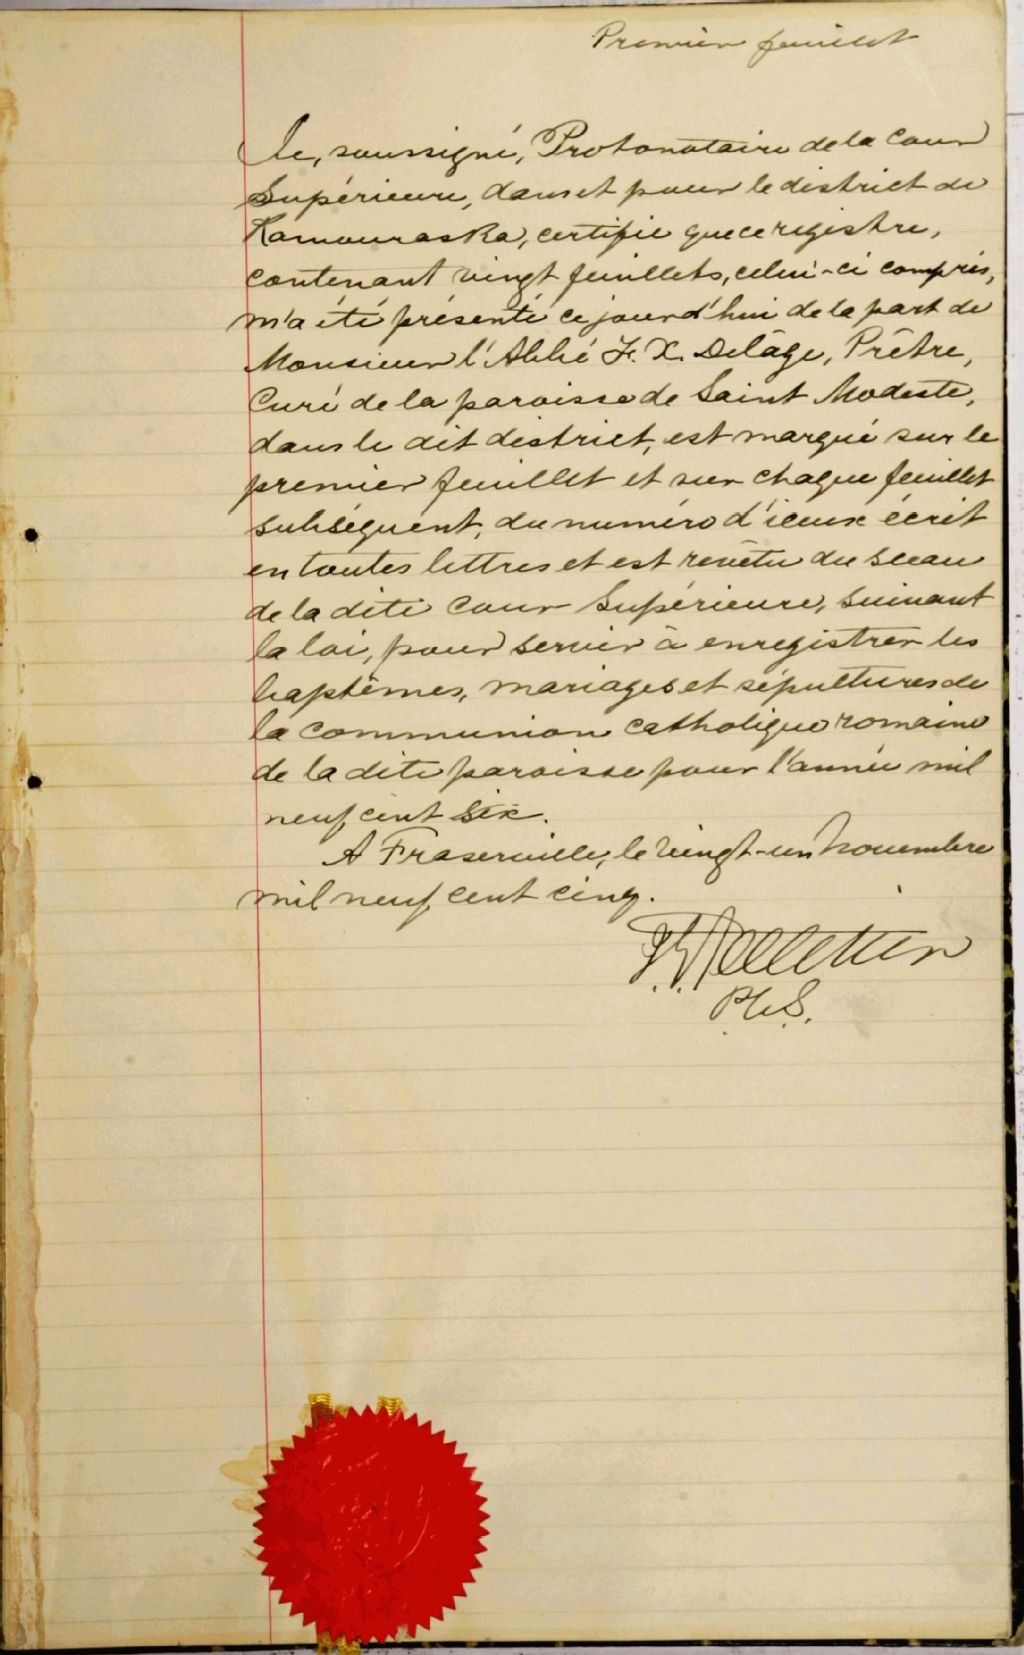 Premier feuillet
Je, soussigné, Protonotaire de la Cour
Supérieure, dans et pour le district de
Kamouraska, certifie que ce registre,
contenant vingt feuillets, celui-ci compris,
m'a été présenté ce jourd'hui de la part de
Monsieur l'Abbé F. X. Delâge, Prêtre,
Curé de la paroisse de Saint Modeste,
dans le dit district, est marqué sur le
premier feuillet et sur chaque feuillet
subséquent, du numéro d'iceux écrit
en toutes lettres et est revêtu du sceau
de la dite Cour Supérieure, suivant
la loi, pour servir à enregistrer les
baptêmes, mariages et sépultures de
la communion catholique romaine
de la dite paroisse pour l'année mil
neuf cent six.
A Fraserville, le vingt-un Novembre
mil neuf cent cinq.
Pelletier
P.C.S.